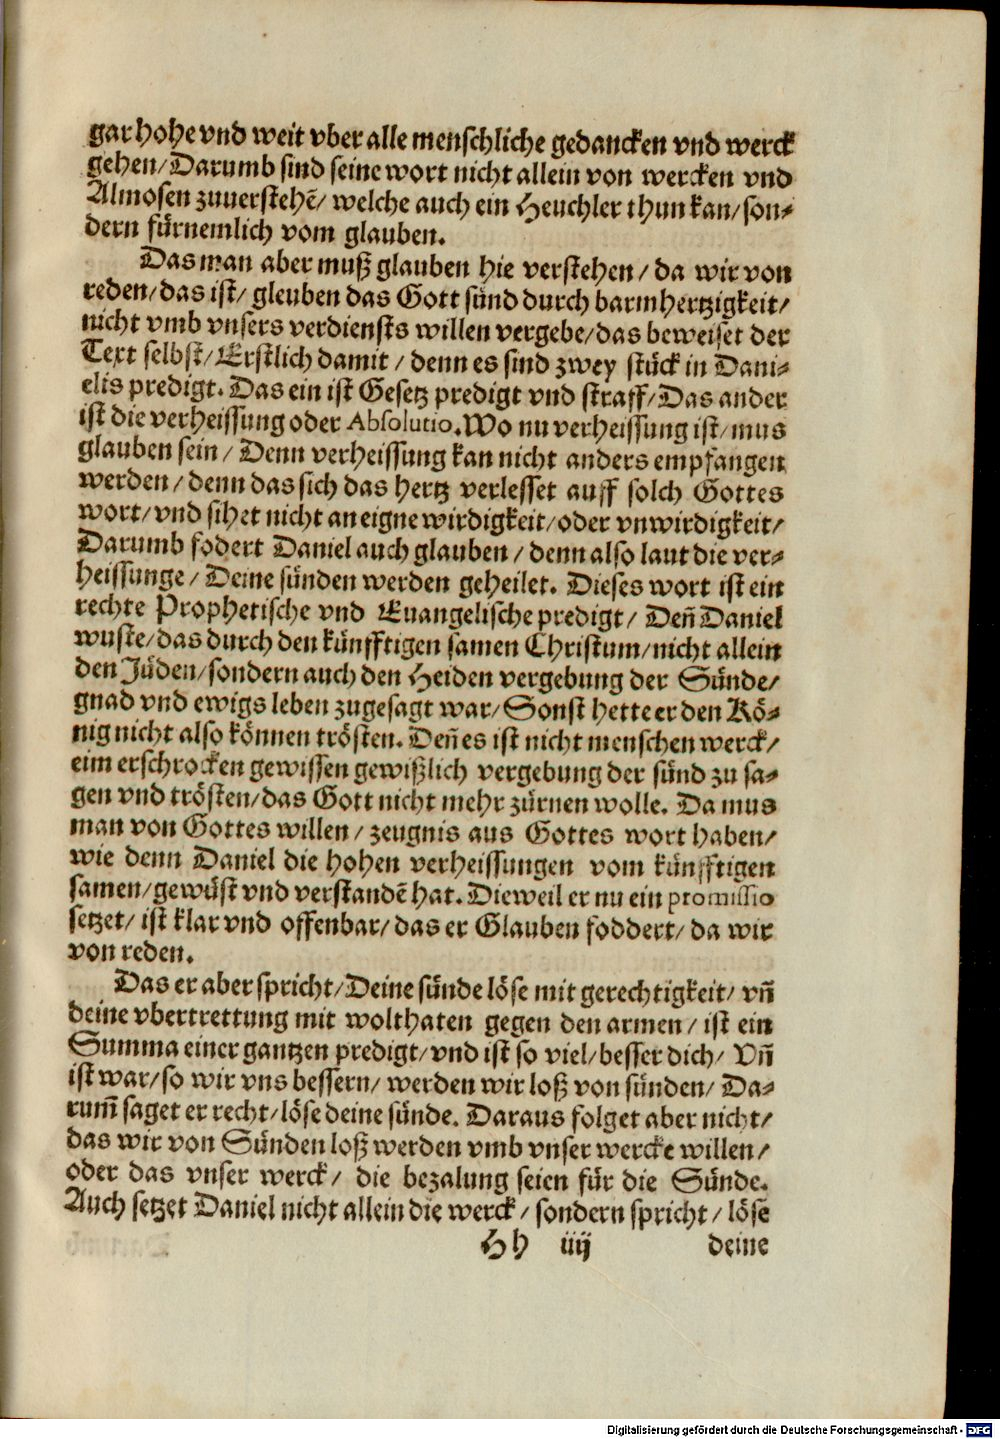 gar hohe vnd weit vber alle menschliche gedancken vnd werck
gehen/ Darumb sind seine wort nicht allein von wercken vnd
Almosen zuuerstehē/ welche auch ein Heuchler thun kan/ son⸗
dern fürnemlich vom glauben.
Das man aber muß glauben hie verstehen/ da wir von
reden/ das ist/ gleuben das Gott sünd durch barmhertzigkeit/
nicht vmb vnsers verdiensts willen vergebe/ das beweiset der
Text selbst/ Erstlich damit/ denn es sind zwey stück in Dani⸗
elis predigt. Das ein ist Gesetz predigt vnd straff/ Das ander
ist die verheissung oder Absolutio. Wo nu verheissung ist/ mus
glauben sein/ Denn verheissung kan nicht anders empfangen
werden/ denn das sich das hertz verlesset auff solch Gottes
wort/ vnd sihet nicht an eigne wirdigkeit/ oder vnwirdigkeit/
Darumb fodert Daniel auch glauben/ denn also laut die ver⸗
heissunge/ Deine sünden werden geheilet. Dieses wort ist ein
rechte Prophetische vnd Euangelische predigt/ Deñ Daniel
wuste/ das durch den künfftigen samen Christum/ nicht allein
den Jüden/ sondern auch den Heiden vergebung der Sünde/
gnad vnd ewigs leben zugesagt war/ Sonst hette er den Kö⸗
nig nicht also können trösten. Deñ es ist nicht menschen werck/
eim erschrocken gewissen gewißlich vergebung der sünd zu sa⸗
gen vnd trösten/ das Gott nicht mehr zürnen wolle. Da mus
man von Gottes willen/ zeugnis aus Gottes wort haben/
wie denn Daniel die hohen verheissungen vom künfftigen
samen/ gewüst vnd verstandē hat. Dieweil er nu ein promissio
setzet/ ist klar vnd offenbar/ das er Glauben foddert/ da wir
von reden.
Das er aber spricht/ Deine sünde löse mit gerechtigkeit/ vñ
deine vbertrettung mit wolthaten gegen den armen/ ist ein
Summa einer gantzen predigt/ vnd ist so viel/ besser dich/ Vñ
ist war/ so wir vns bessern/ werden wir loß von sünden/ Da⸗
rum̃ saget er recht/ löse deine sünde. Daraus folget aber nicht/
das wir von Sünden loß werden vmb vnser wercke willen/
oder das vnser werck/ die bezalung seien für die Sünde.
Auch setzet Daniel nicht allein die werck/ sondern spricht/ löse
Hh iiij deine
Digitalisierung gefördert durch die Deutsche Forschungsgemeinschaft - DFG